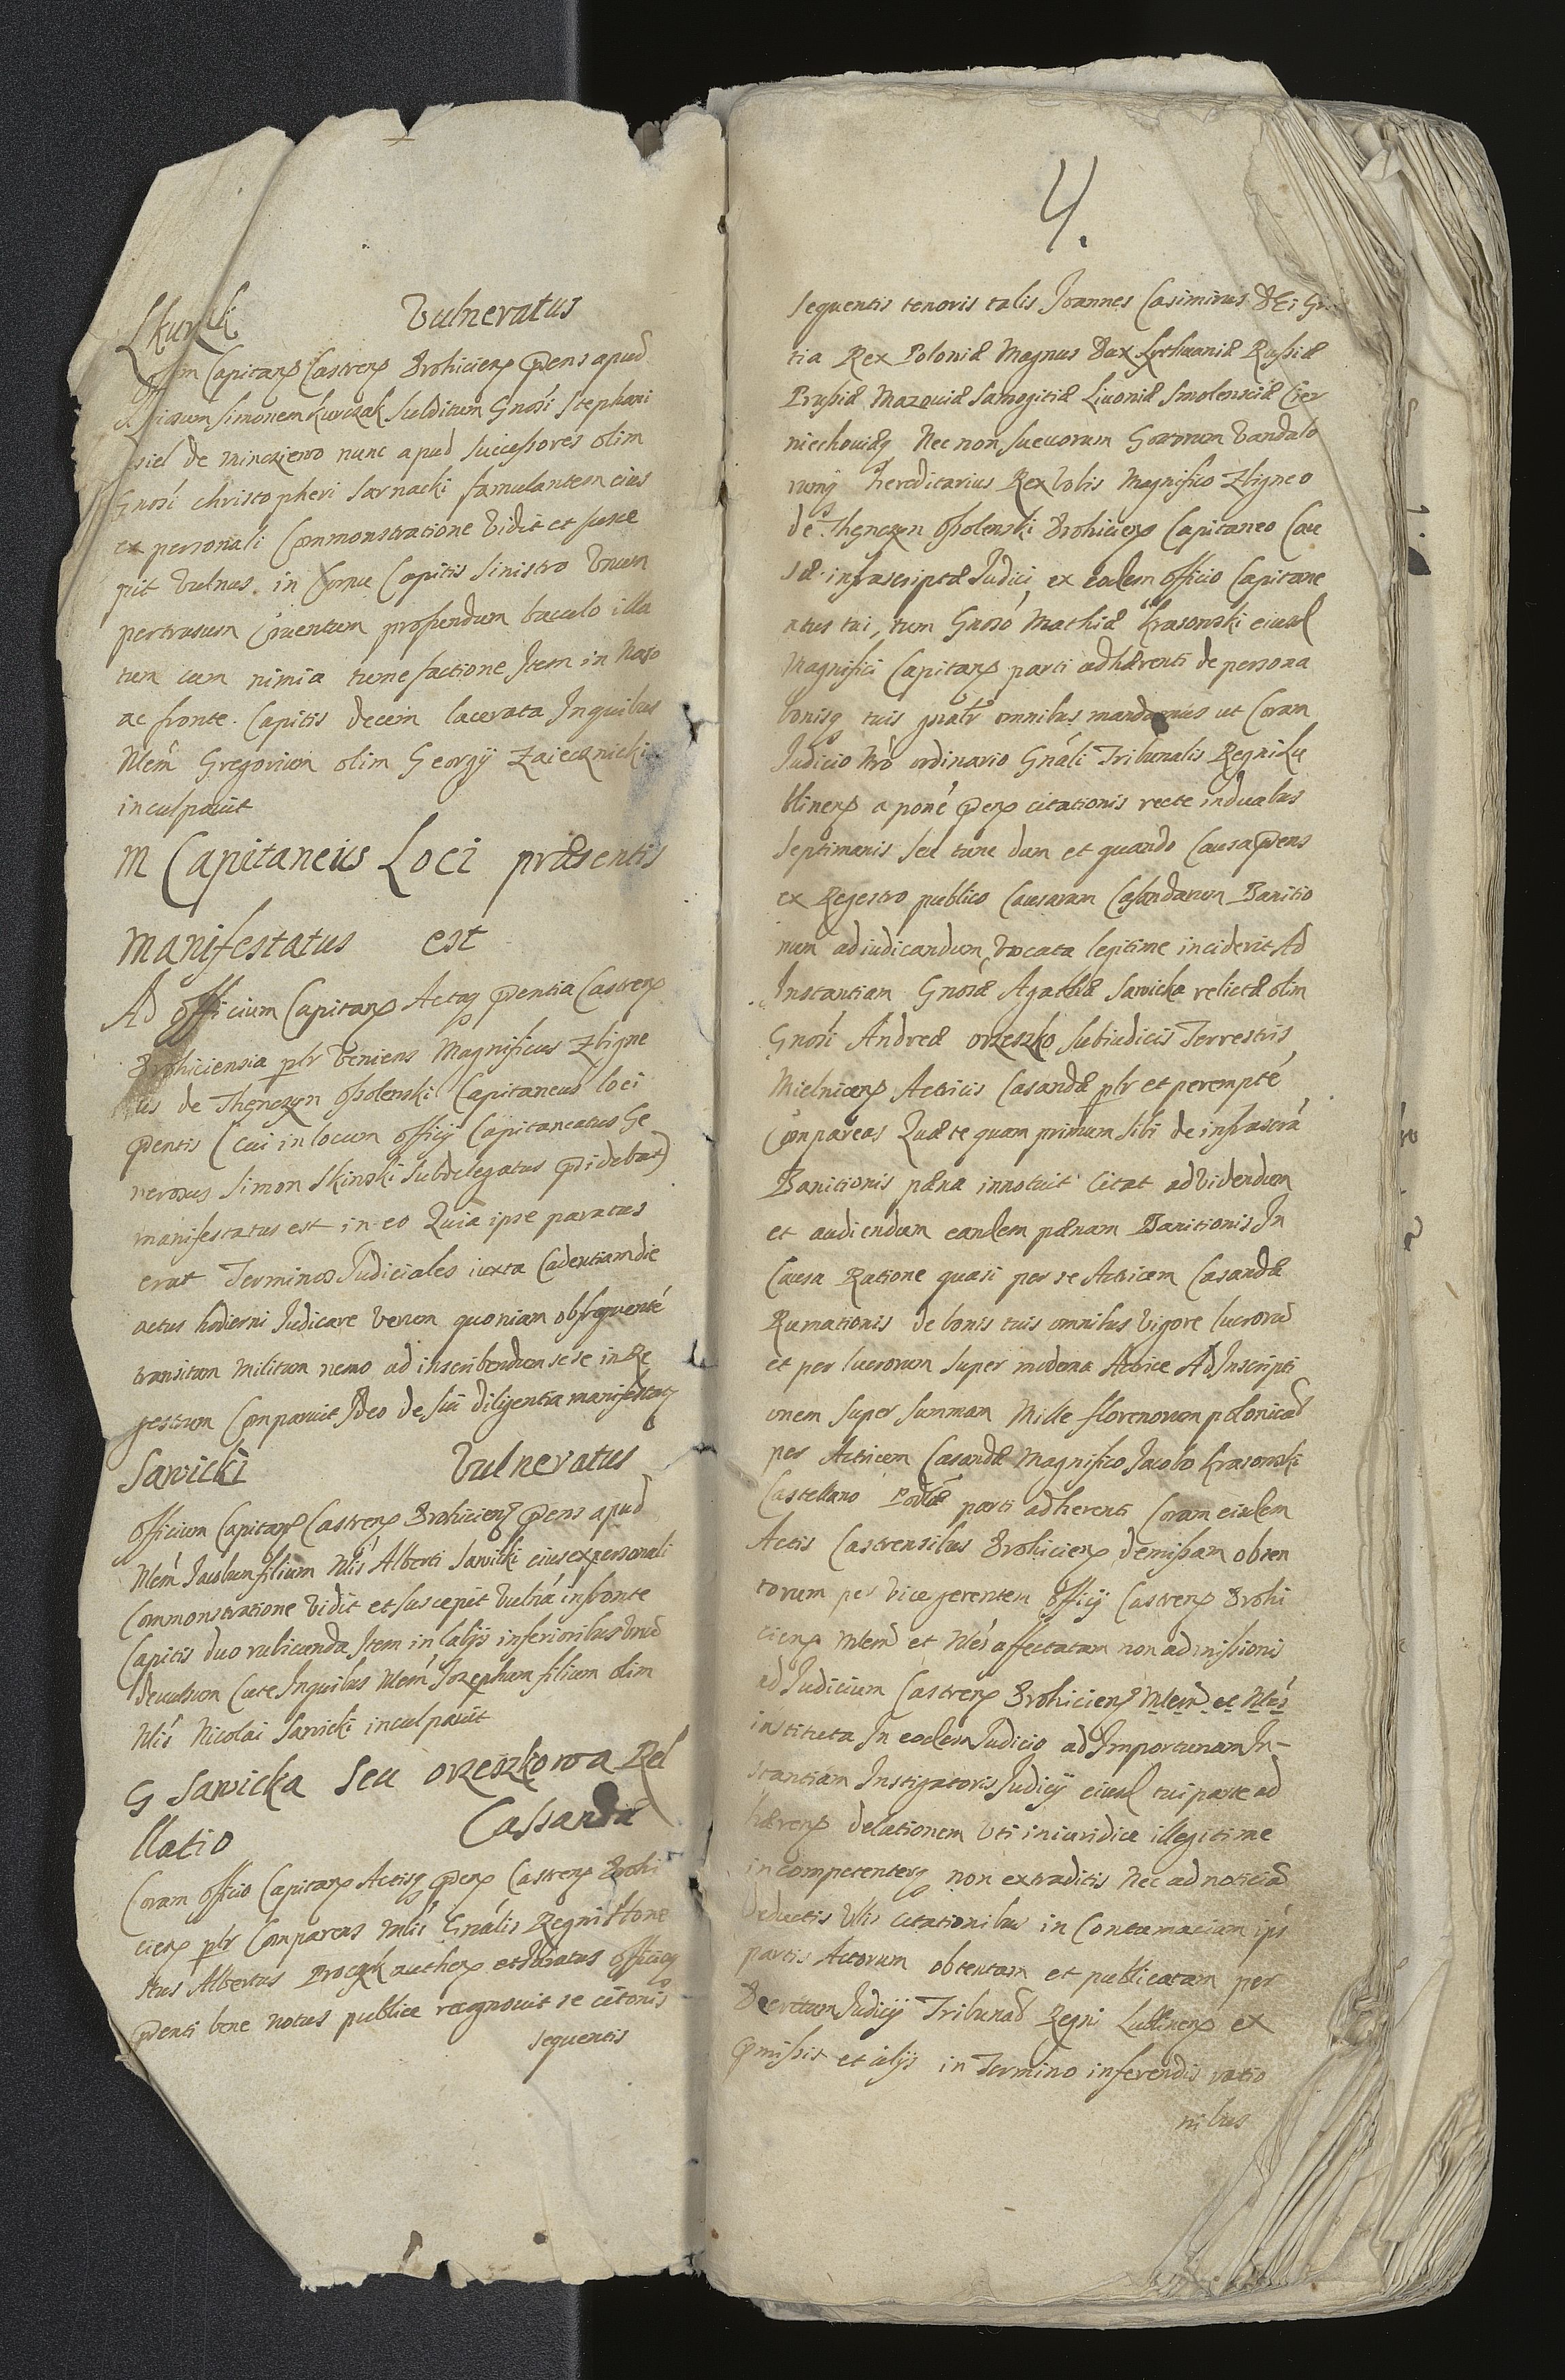 Vulneratus
Capitanẽ Castrenẽ Drohicienẽ p̃ens apud
Simonem Kurczak subditum Gnosi Stephani
de Minczewo nunc apud successores olim
Gnosi Christopheri Sarnacki famulantem eius
ex personali Commonstratione vidit et susce
pit vulnus in Cornu Capitis sinistro unum
pertrusum cruentum profundum baculo illa
tum cum nimia tumefactione Item in Naso
ac fronte Capitis decem lacerata Inquibus
Nlem Gregorium olim Georgij Zaiecznicki
inculpavit
M Capitaneus Loci præsentis
manifestatus est
Ad officium Capitanẽ Actaq p̃entia Castrenẽ
Drohiciensia plr veniens Magnificus Zbigne
us de Thenczyn Ossolenski Capitaneus loci
p̃entis (cui in locum officij Capitaneatus Ge
nerosus Simon Skinski subdelegatus p̃sidebat)
manifestatus est in eo Quia ipse paratus
erat Terminos Judiciales iuxta Cadentiam die
actus hodierni Judicare verum quoniam ob frequentẽ
transitum Militum nemo ad inscribendum sese in Re
gestrum Comparuit Ideo de sui diligentia manifestatq
Sawicki Vulneratus
Officium Capitanẽ Castrenẽ Drohicienẽ p̃ens apud
Nlem Jacobum filium Nlis Alberti Sawicki eius ex personali
Commonstratione vidit et suscepit vulnera in fronte
Capitis duo rubicunda Item in labijs inferioribus unũ
devulsum Cute Inquibus Nlem Josephum filium olim
Nlis Nicolai Sawicki inculpavit
G Sawicka seu Orzeszkowa Rel
llatio Cassandæ
Coram officio Capitanẽ Actisq p̃enẽ Castrenẽ Drohi
cienẽ plr Comparens Mlis Gnalis Regni Hone
stus Albertus Proczek authenẽ et Juratus officioq
p̃enti bene notus publice recognovit se citõnis
sequentis
4.
sequentis tenoris talis Joannes Casimirus DEi Gr
tia Rex Poloniæ Magnus Dux Lythuaniæ Russiæ
Prussiæ Mazouiæ Samogitiæ Liuoniæ Smolensciæ Czer
niechouiæq Nec non Sueuorum Gottorum Vandalo
rumq hereditarius Rex Vobis Magnifico Zbigneo
de Thenczyn Ossolenski Drohicienẽ Capitaneo Cau
sæ infrascriptæ Judici ex eodem officio Capitane
atus tui, tum Gnoso Mathiæ Krasowski eiusd
Magnifici Capitanẽ parti adhærenti de persona
bonisq tuis gnalr omnibus mandamus ut Coram
Judicio Nrõ ordinario Gnali Tribunalis Regni Lu
blinenẽ a põne p̃enẽ citationis recte induabus
septimanis seu tunc dum et quando Causa p̃ens
ex Regestro publico Causarum Cassandarum Banitio
num adiudicandum vocata legitime inciderit Ad
Instantiam Gnosæ Agathæ Sawicka relictæ olim
Gnosi Andreæ Orzeszko Subiudicis Terrestris
Mielnicenẽ Actricis Casandæ plr et peremptẽ
Compareas Quæ te quam primum sibi de infrascrã
Banitionis pæna innotuit Citat ad videndum
et audiendum eandem pænam Banitionis In
Causa Ratione quasi per se Actricem Casandæ
Rumationis de bonis tuis omnibus vigore lucrorũ
et per lucrorum super eadem Actrice Ad Inscripti
onem super summam Mille florenorum polonicaũ
per Actricem Casandæ Magnifico Jacobo Krasowski
Castellano Podlæ parti adherenti Coram eisdem
Actis Castrensibus Drohicienẽ demissam obten
torum per vicegerentem officij Castrenẽ Drohi
cienẽ Nlem et Nles affectatam non admissionis
ad Judicium Castrenẽ Drohicienẽ Nlem et Nles
instituta In eodem Judicio ad Importunam In-
stantiam Instigatoris Judicij eiusd tui parte ad
hærenẽ delationem uti iniuridice illegitime
incompetenterq non extraditis Nec ad noticiã
deductis ullis citationibus in Contumaciam ips
partis Actorum obtentam et publicatam per
Decretum Judicij Tribunal Regni Lublinenẽ ex
p̃missis et alijs in Termino inferendis ratio
nibus